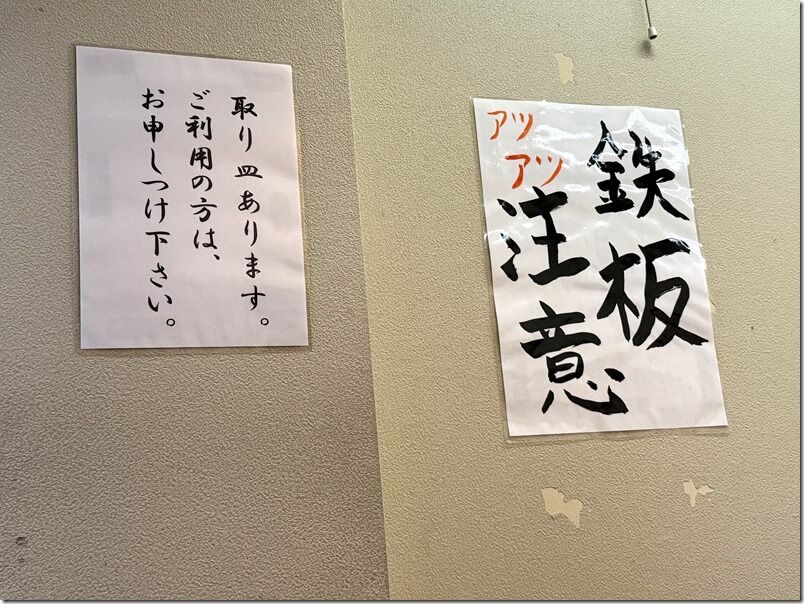 取り皿あります。
ご利用の方は、
お申しつけ下さい。
鉄板
アツ
アツ
注意